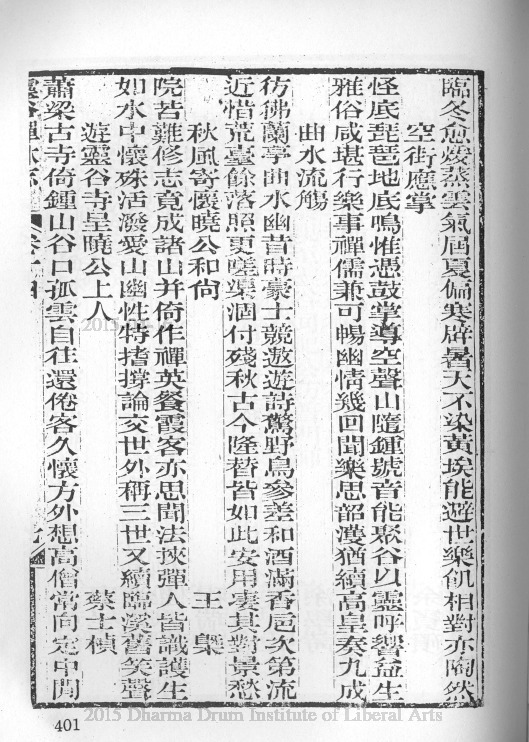 臨冬愈煖蒸雲氣屆夏偏寒辟暑天不染黃埃能避世樂飢相對亦陶然
空街應掌
怪底琵琶地底鳴惟憑鼓掌導空聲山隨鍾號音能聚谷以靈呼響益生
雅俗咸堪行樂事禪儒兼可暢幽情幾回聞樂思韶濩猶續高臯奏九成
曲水流觴
彷彿蘭亭曲水幽昔時豪士競遨遊詩驚野鳥參差和酒滿香卮次第流
近惜荒臺餘落照更墜渠涸付殘秋古今隆替皆如此安用凄其對景愁
秋風寄懷曉公和尙 王槩
院苦難修志竟成諸山并倚作禪英餐霞客亦思聞法挾彈人皆識護生
如水中懷殊活潑愛山幽性特揩撐論交世外稱三世又續臨溪舊笑聲
遊靈谷寺呈曉公上人 蔡士楨
蕭梁古寺倚鍾山谷口孤雲自往還倦客久懷方外想高僧常向定中閒
靈谷禪林志 卷十四
401
2015 Dharma Drum Institute of Liberal Arts